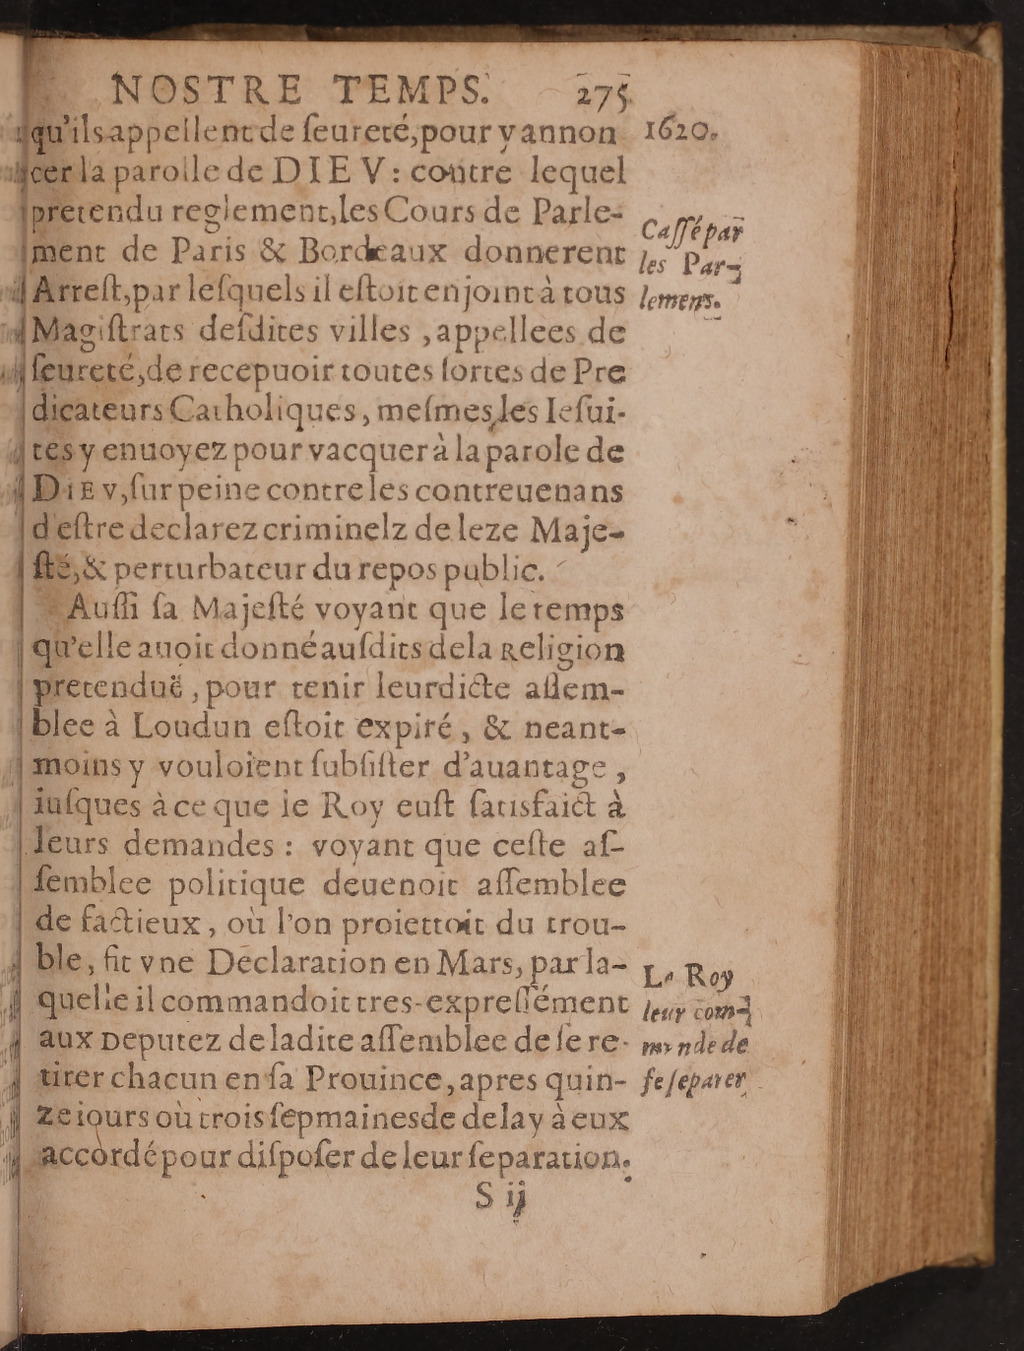 NOSTRE TEMPS. 275
qu'ils appellent de ſeureté, pour y annon
1620.
cer la parolle de DIEV : contre lequel
pretendu reglement, les Cours de Parle-
ment de Paris & Bordeaux donnerent
Arreſt, par leſquels il eſtoit enjoint à tous
Caſſé par
les Par-
lemens.
Magiſtrats deſdites villes, appellees de
ſeureté, de recepuoir toutes ſortes de Pre
dicateurs Catholiques, meſmes les Ieſui-
tes y enuoyez pour vacquer à la parole de
DIEV, ſur peine contre les contreuenans
d'eſtre declarez criminelz de leze Maje-
ſté, & perturbateur du repos public.
Auſſi ſa Majeſté voyant que le temps
qu'elle auoit donné auſdits de la Religion
pretenduë, pour tenir leurdicte aſſem-
blee à Loudun eſtoit expiré, & neant-
moins y vouloient ſubſiſter d'auantage,
iuſques à ce que le Roy euſt ſatisfaict à
leurs demandes : voyant que ceſte aſ-
ſemblee politique deuenoit aſſemblee
de factieux, où l'on proiettoit du trou-
ble, fit vne Declaration en Mars, par la-
quelle il commandoit tres-expreſſément
aux Deputez de ladite aſſemblee de ſe re-
tirer chacun en ſa Prouince, apres quin-
Le Roy
leur com-
mande de
ſe ſeparer
ze iours où trois ſepmaines de delay à eux
accordé pour diſpoſer de leur ſeparation.
S ij